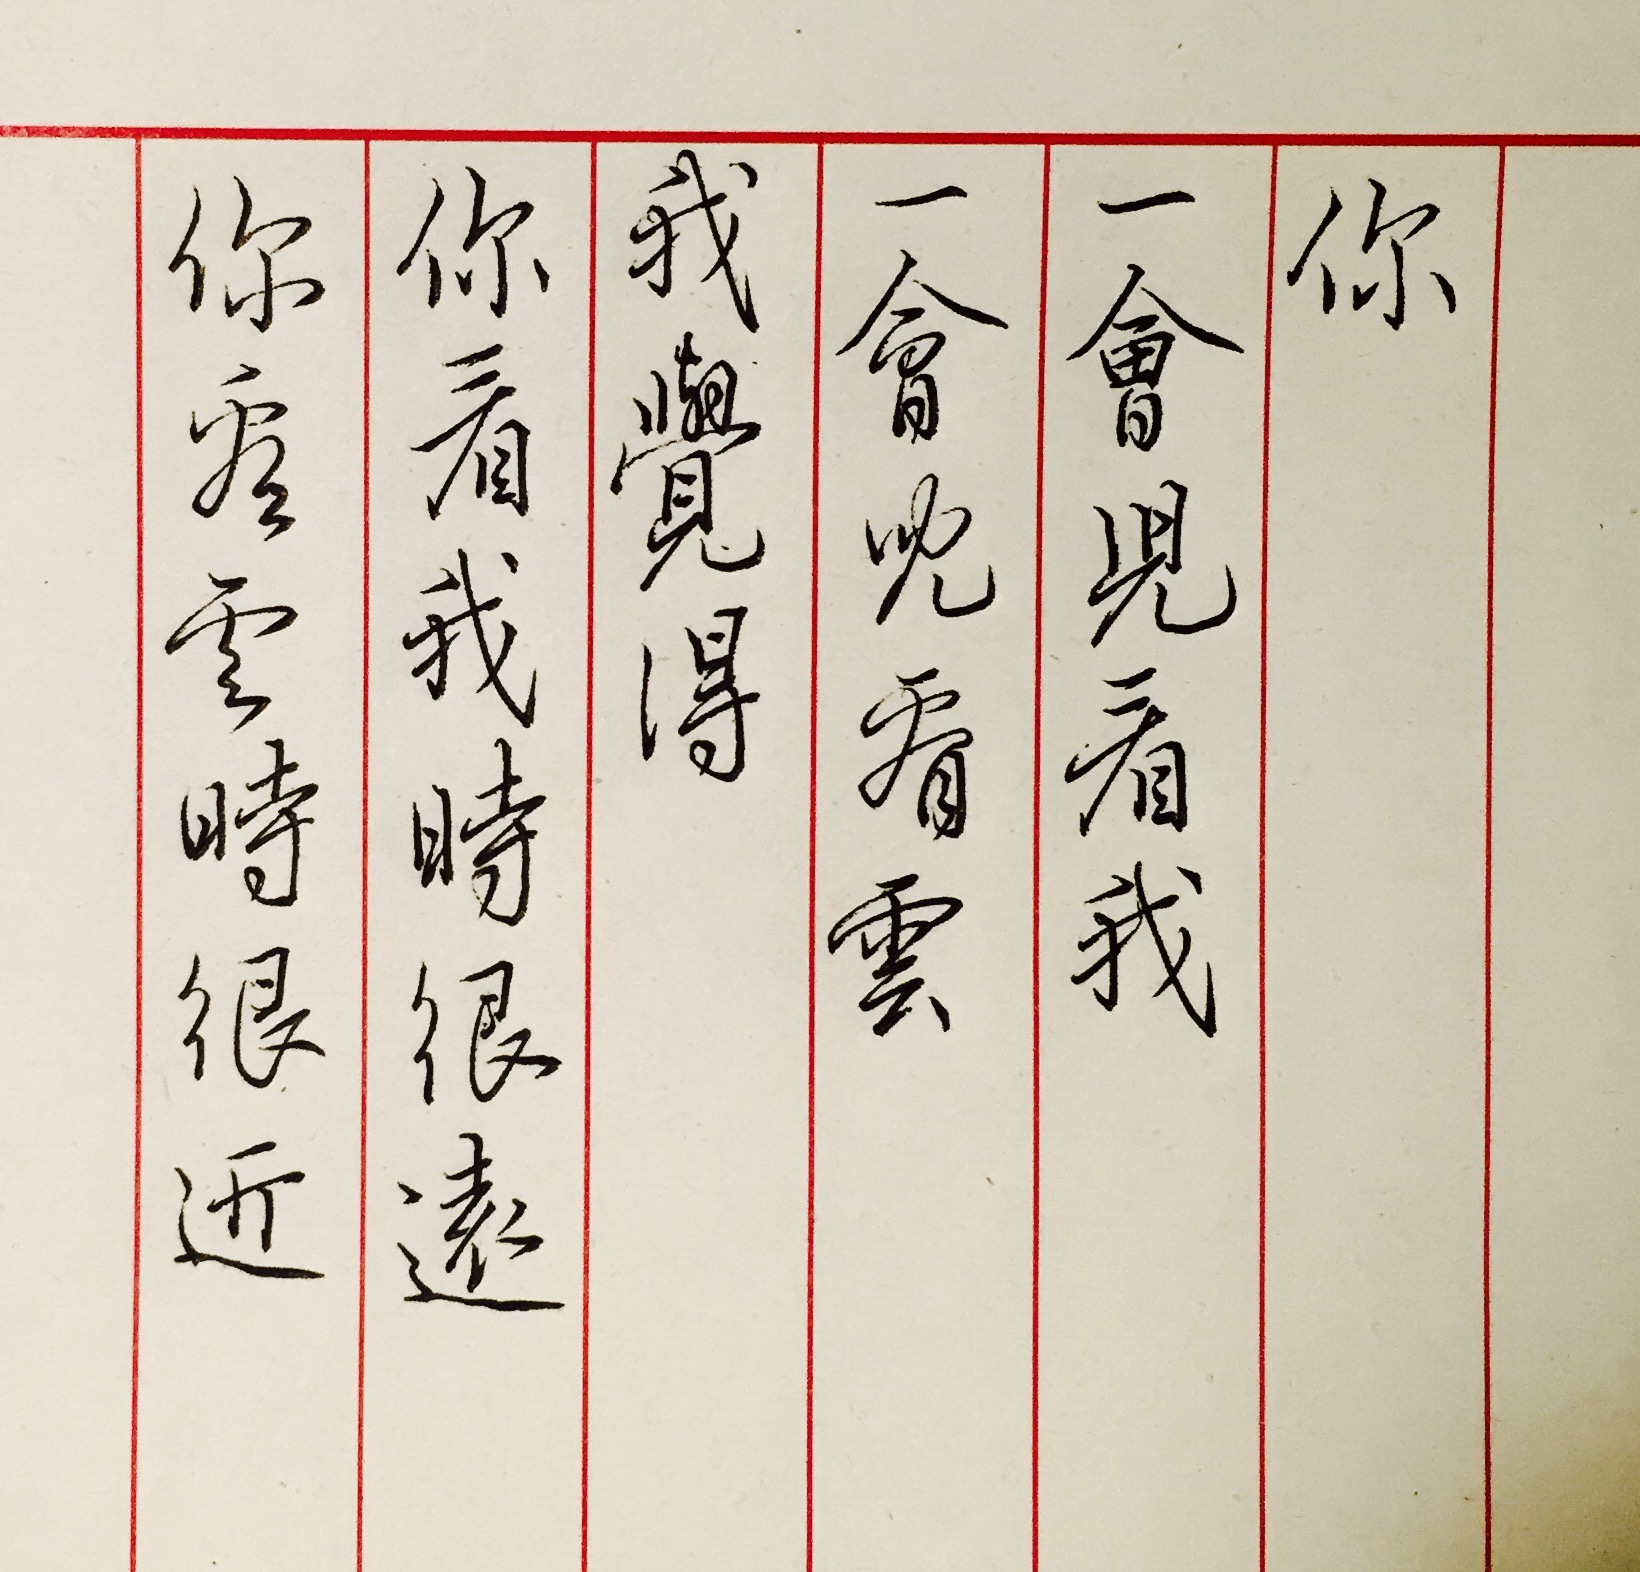 你
一會兒看我
一會兒看雲
我覺得
你看我時很遠
你看雲時很近